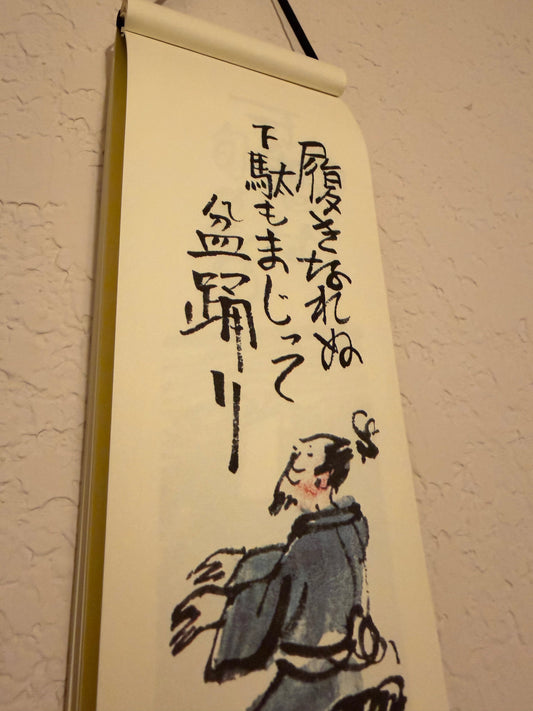 履きなれぬ
下駄もまじって
盆踊り